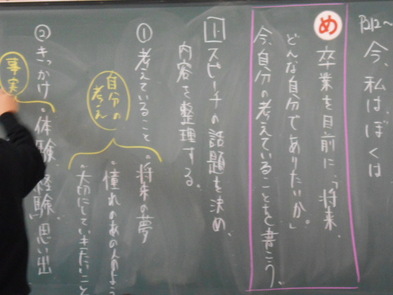 P.212〜 今、私は、ぼくは
め
卒業を目前に、「将来、
どんな自分でありたいか」
今、自分の考えていることを書こう。
1. スピーチの話題を決め、
内容を整理する。
① 考えていること
自分の考え
・将来の夢
・憧れのあの人のように
・大切にしていきたいこと
② きっかけ
事実
・体験、経験、思い出